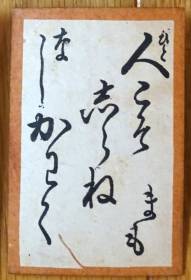 人こそ
ひと
志らね
かわく
まも
なし